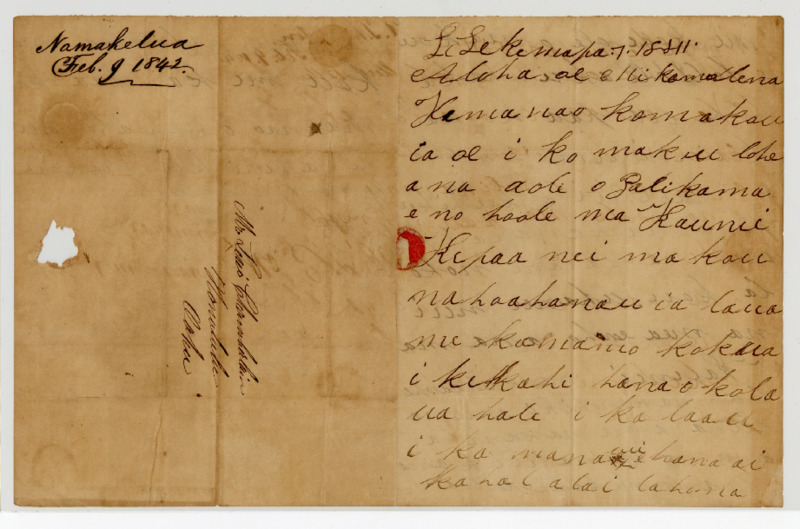 Namakelua
Feb. 9 1842.
Mr Levi Chamberlain
Honolulu
Oahu
Aloha oe e Mi kamalena
He manao ko makou
ia oe i ko makou lohe
ana aole o Palikama
e no hoole ma Kauwii
Ke paa nei makou
na hoahanau ia laua
me ko manao kokua
i kekahi hana o kola
ua hale i ka laau
i ka mana hana ai
ka hale alai lahoma